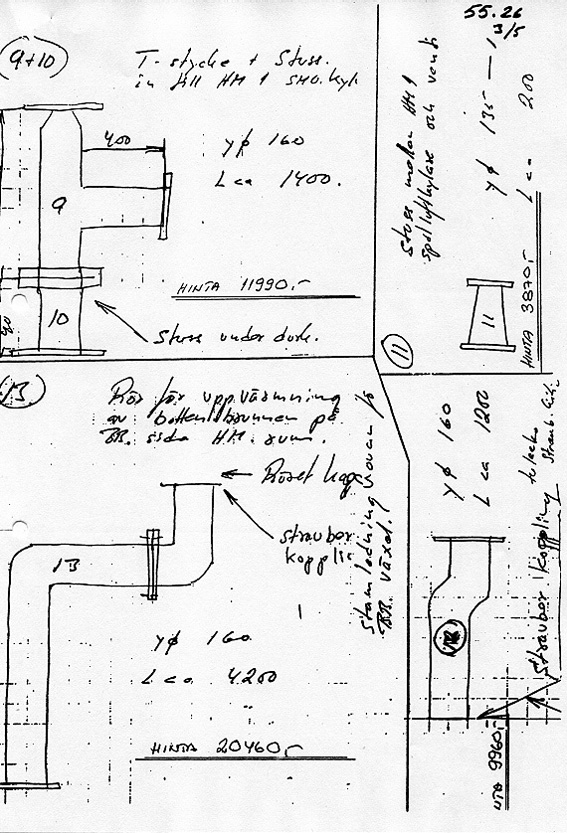 55.26
3/5
9+10
T-stycke + Stuss.
in till HM 1 smo.kyl.
400
yφ 160
L ca 1400.
9
HINTA 11990,-
10
Stuss under durk.
Stuss mellan HM1
spolluftkylare och ventil
yφ 135 —
L ca 200
11
HINTA 3870,-
11
13
Rör för uppvärmning
av bottenbrunnen på
BB. sida HM. rum.
Röret kapa
straubor
kopplin
13
yφ 160
L ca 4200
HINTA 20460,-
Stamledning ovan
BB. växel.
yφ 160
L ca 1200
straubor koppling
NTA 9960,-